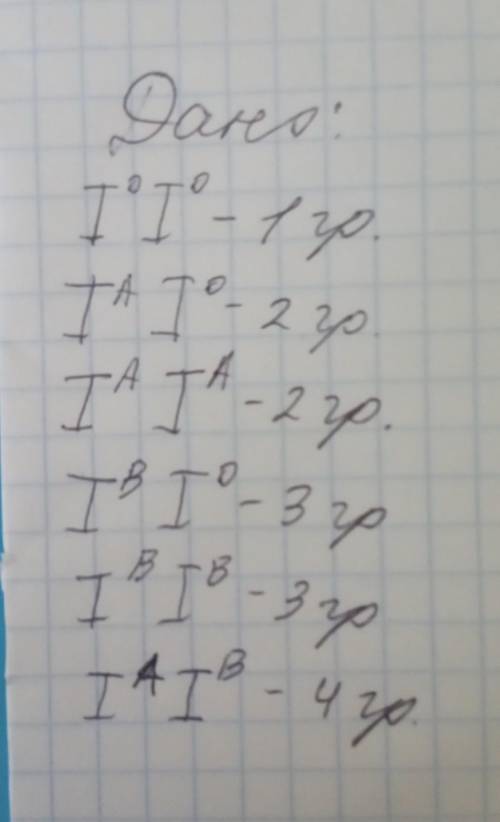 Дано:
I⁰ I⁰ - 1 гр.
Iᴬ I⁰ - 2 гр.
Iᴬ Iᴬ - 2 гр.
Iᴮ I⁰ - 3 гр
Iᴮ Iᴮ - 3 гр
Iᴬ Iᴮ - 4 гр.